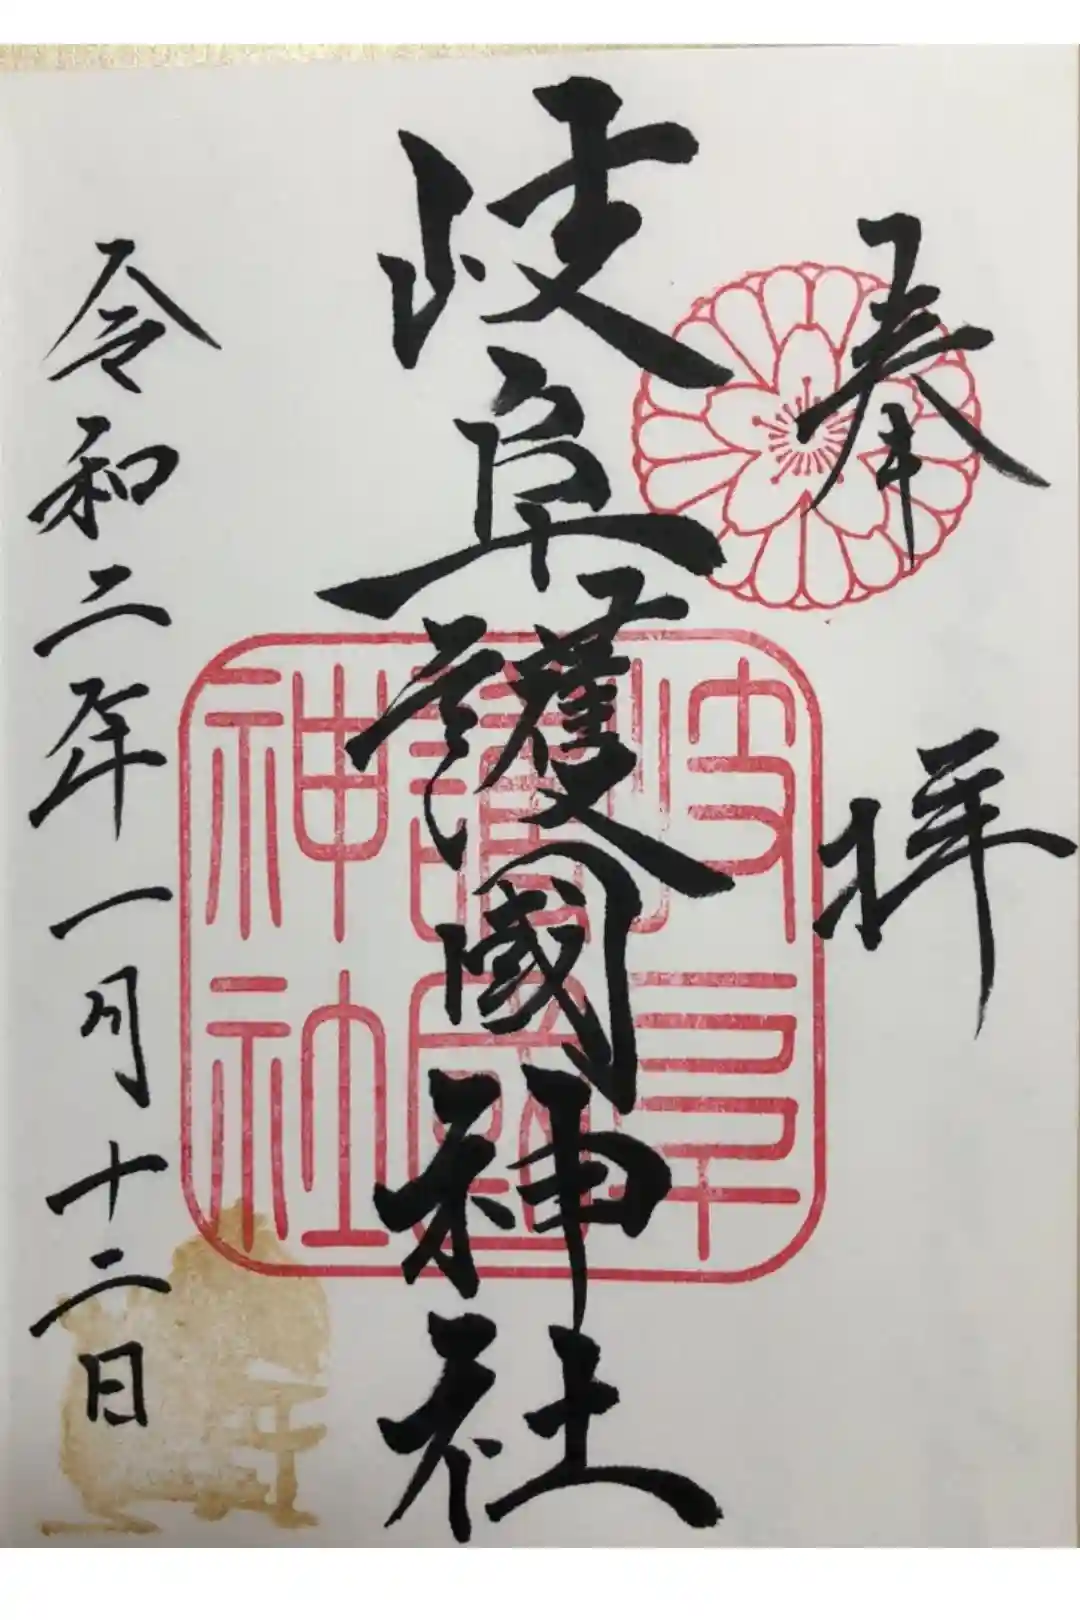 奉拝
岐阜護國神社
岐阜
護國
神社
令和二年一月十二日